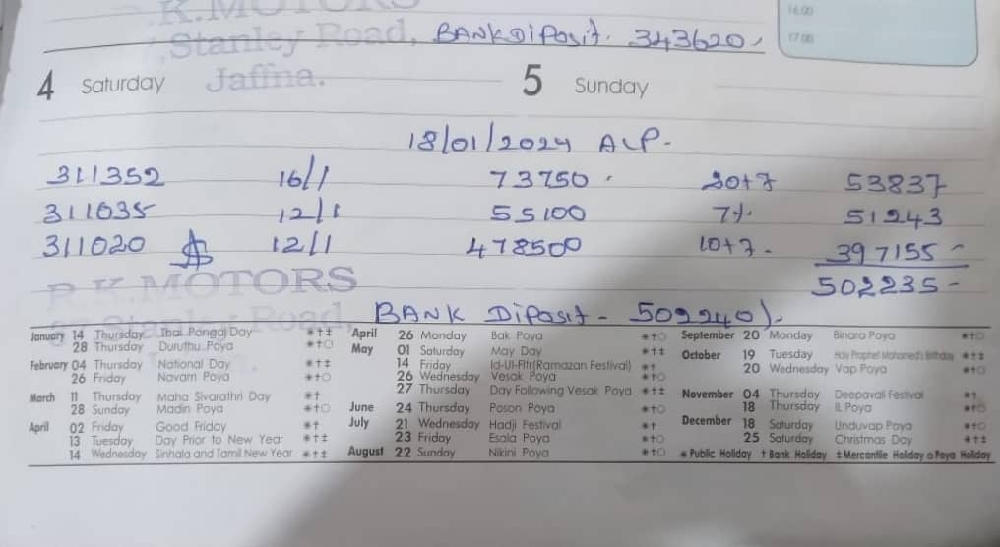 R.K.MOTORS 16.00
Stanley Road, BANK Diposit. 343620/- 17.00
4 Saturday Jaffna. 5 Sunday
18/01/2024 ALP-
311352 16/1 73750 20+7 53837
311035 12/1 55100 7% 51243
311020 $ 12/1 478500 10+7- 397155-
R.K.MOTORS 502235-
Road, BANK Diposit - 502240/-
January 14 Thursday Thai Pongal Day *†‡ April 26 Monday Bak Poya *†○ September 20 Monday Binara Poya *†○
28 Thursday Duruthu Poya *†○ May 01 Saturday May Day *†‡ October 19 Tuesday Holy Prophet Mohamed's Birthday *†‡
February 04 Thursday National Day *†‡ 14 Friday Id-Ul-Fitr(Ramazan Festival) *† 20 Wednesday Vap Poya *†○
26 Friday Navam Poya *†○ 26 Wednesday Vesak Poya *†○
March 11 Thursday Maha Sivarathri Day *† 27 Thursday Day Following Vesak Poya *†‡ November 04 Thursday Deepavali Festival *†
28 Sunday Madin Poya *†○ June 24 Thursday Poson Poya *†○ 18 Thursday IL Poya *†○
April 02 Friday Good Friday *† July 21 Wednesday Hadji Festival *† December 18 Saturday Unduvap Poya *†○
13 Tuesday Day Prior to New Year *†‡ 23 Friday Esala Poya *†○ 25 Saturday Christmas Day *†‡
14 Wednesday Sinhala and Tamil New Year *†‡ August 22 Sunday Nikini Poya *†○ * Public Holiday † Bank Holiday ‡ Mercantile Holiday ○ Poya Holiday